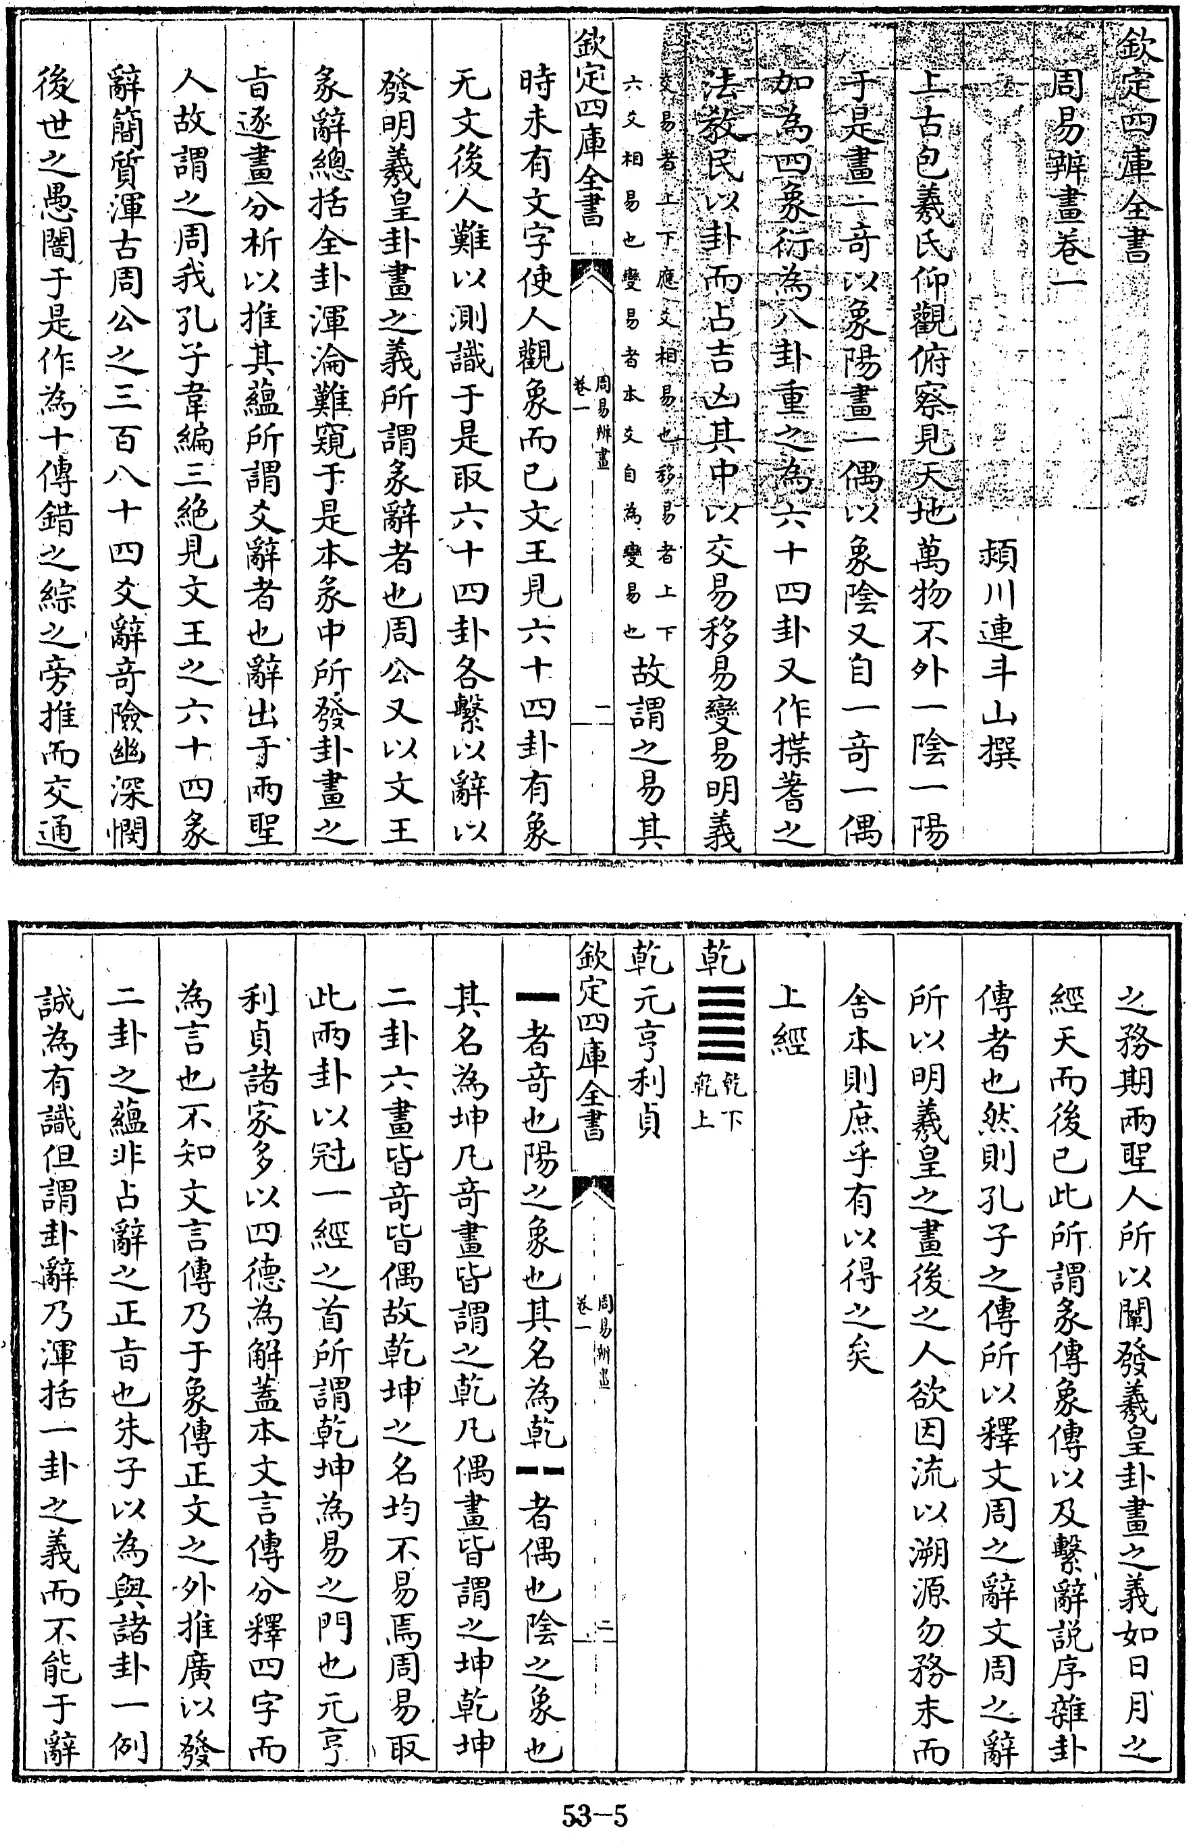 欽定四庫全書
周易辨畫卷一
潁川連斗山撰
上古包羲氏仰觀俯察見天地萬物不外一陰一陽
于是畫一奇以象陽畫一偶以象陰又自一奇一偶
加為四象衍為八卦重之為六十四卦又作揲蓍之
法教民以卦而占吉凶其中以交易移易變易明義
交易者上下應爻相易也移易者上下
六爻相易也變易者本爻自為變易也
故謂之易其
欽定四庫全書
周易辨畫
卷一
一
時未有文字使人觀象而已文王見六十四卦有象
无文後人難以測識于是取六十四卦各繫以辭以
發明羲皇卦畫之義所謂彖辭者也周公又以文王
彖辭總括全卦渾淪難窺于是本彖中所發卦畫之
旨逐畫分析以推其蘊所謂爻辭者也辭出于兩聖
人故謂之周我孔子韋編三絕見文王之六十四彖
辭簡質渾古周公之三百八十四爻辭奇險幽深憫
後世之愚闇于是作為十傳錯之綜之旁推而交通
之務期兩聖人所以闡發羲皇卦畫之義如日月之
經天而後已此所謂彖傳象傳以及繫辭說序雜卦
傳者也然則孔子之傳所以釋文周之辭文周之辭
所以明羲皇之畫後之人欲因流以溯源勿務末而
舍本則庶乎有以得之矣
上經
乾䷀乾下
乾上
乾元亨利貞
欽定四庫全書
周易辨畫
卷一
二
⚊者奇也陽之象也其名為乾⚋者偶也陰之象也
其名為坤凡奇畫皆謂之乾凡偶畫皆謂之坤乾坤
二卦六畫皆奇皆偶故乾坤之名均不易焉周易取
此兩卦以冠一經之首所謂乾坤為易之門也元亨
利貞諸家多以四德為解蓋本文言傳分釋四字而
為言也不知文言傳乃于彖傳正文之外推廣以發
二卦之蘊非占辭之正旨也朱子以為與諸卦一例
誠為有識但謂卦辭乃渾括一卦之義而不能于辭
53-5